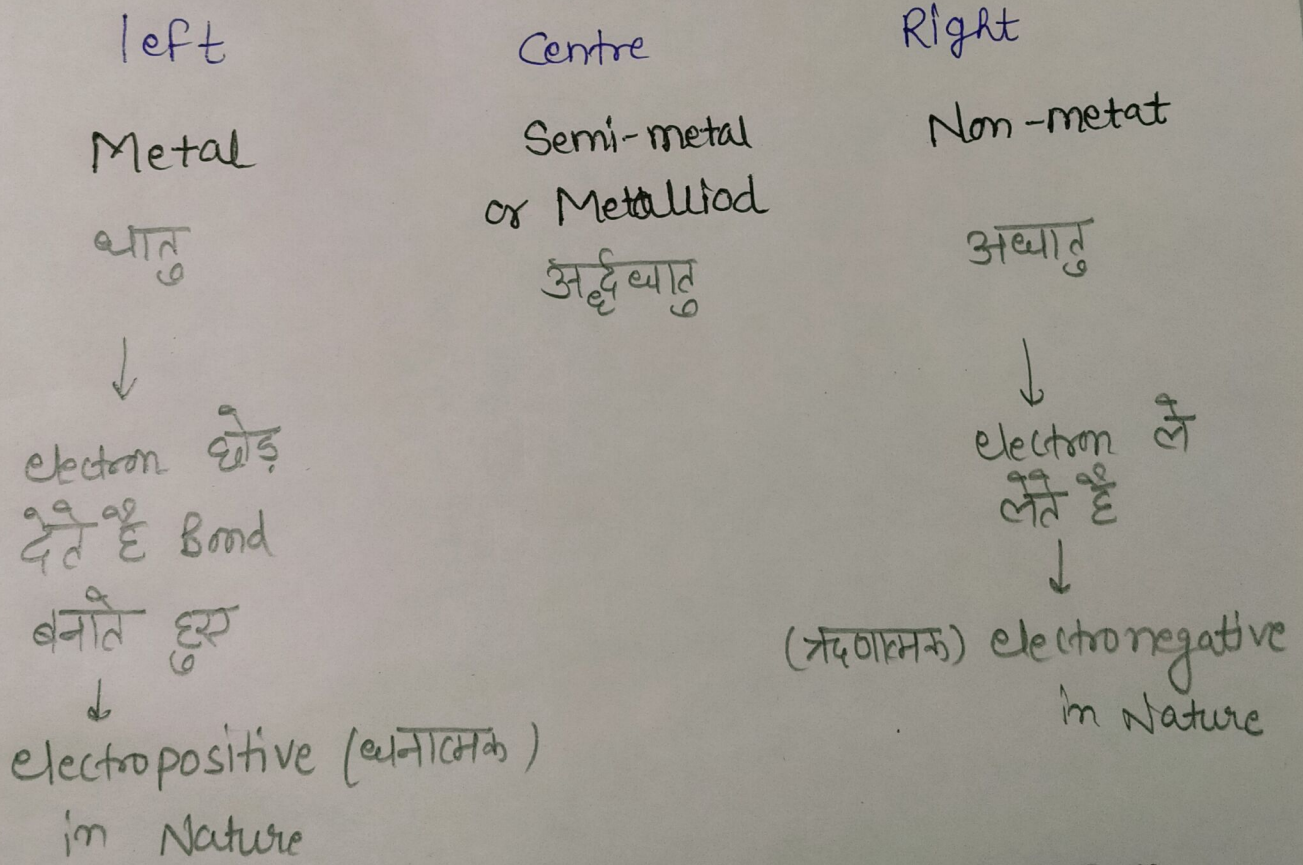 left
Metal
धातु
↓
electron छोड़
देते है Bond
बनाते हुए
↓
electropositive (धनात्मक)
in Nature
Centre
Semi-metal
or Metalliod
अर्द्धधातु
Right
Non-metat
अधातु
↓
electron ले
लेते है
↓
(ऋणात्मक) electronegative
in Nature